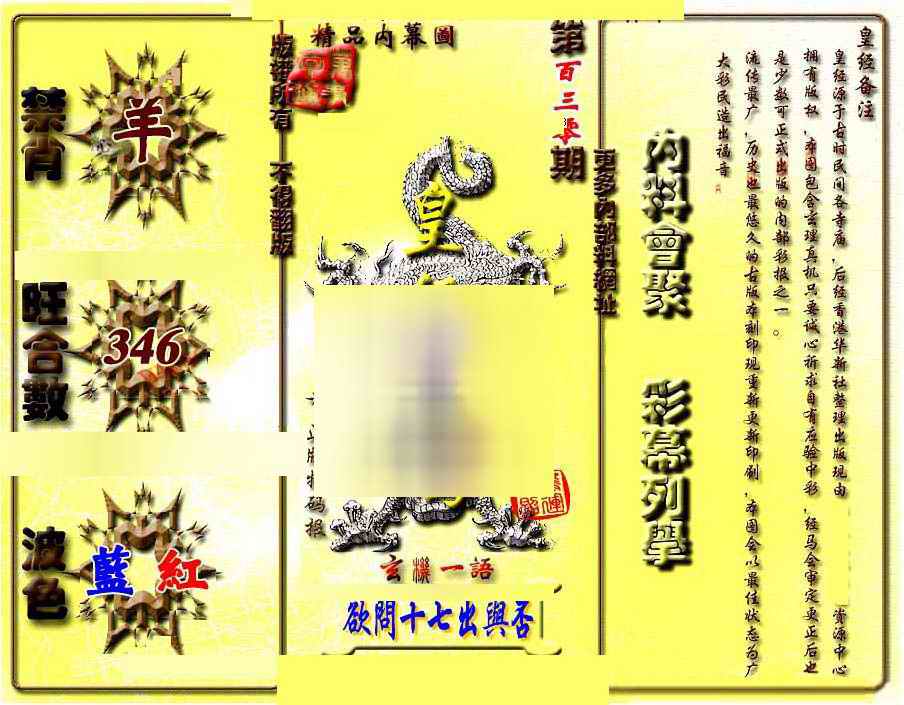 皇经备注
皇经源于古时民间各寺庙，后经香港华新社整理出版现由
资源中心
拥有版权，本图包含玄理真机只要诚心祈求自有应验中彩，经马会审定更正后也
是少数可正式出版的内部彩报之一。
流传最广，历史也最悠久的古版本刻印现重新更新印刷，本图会以最佳状态为广
大彩民造出福音。
内料會聚
彩幕列舉
更多內部料網址
第百三零期
精品內幕圖
皇
玄機一語
欲問十七出與否
版權所有
不得翻版
禁肖
羊
旺合數
346
波色
藍
紅